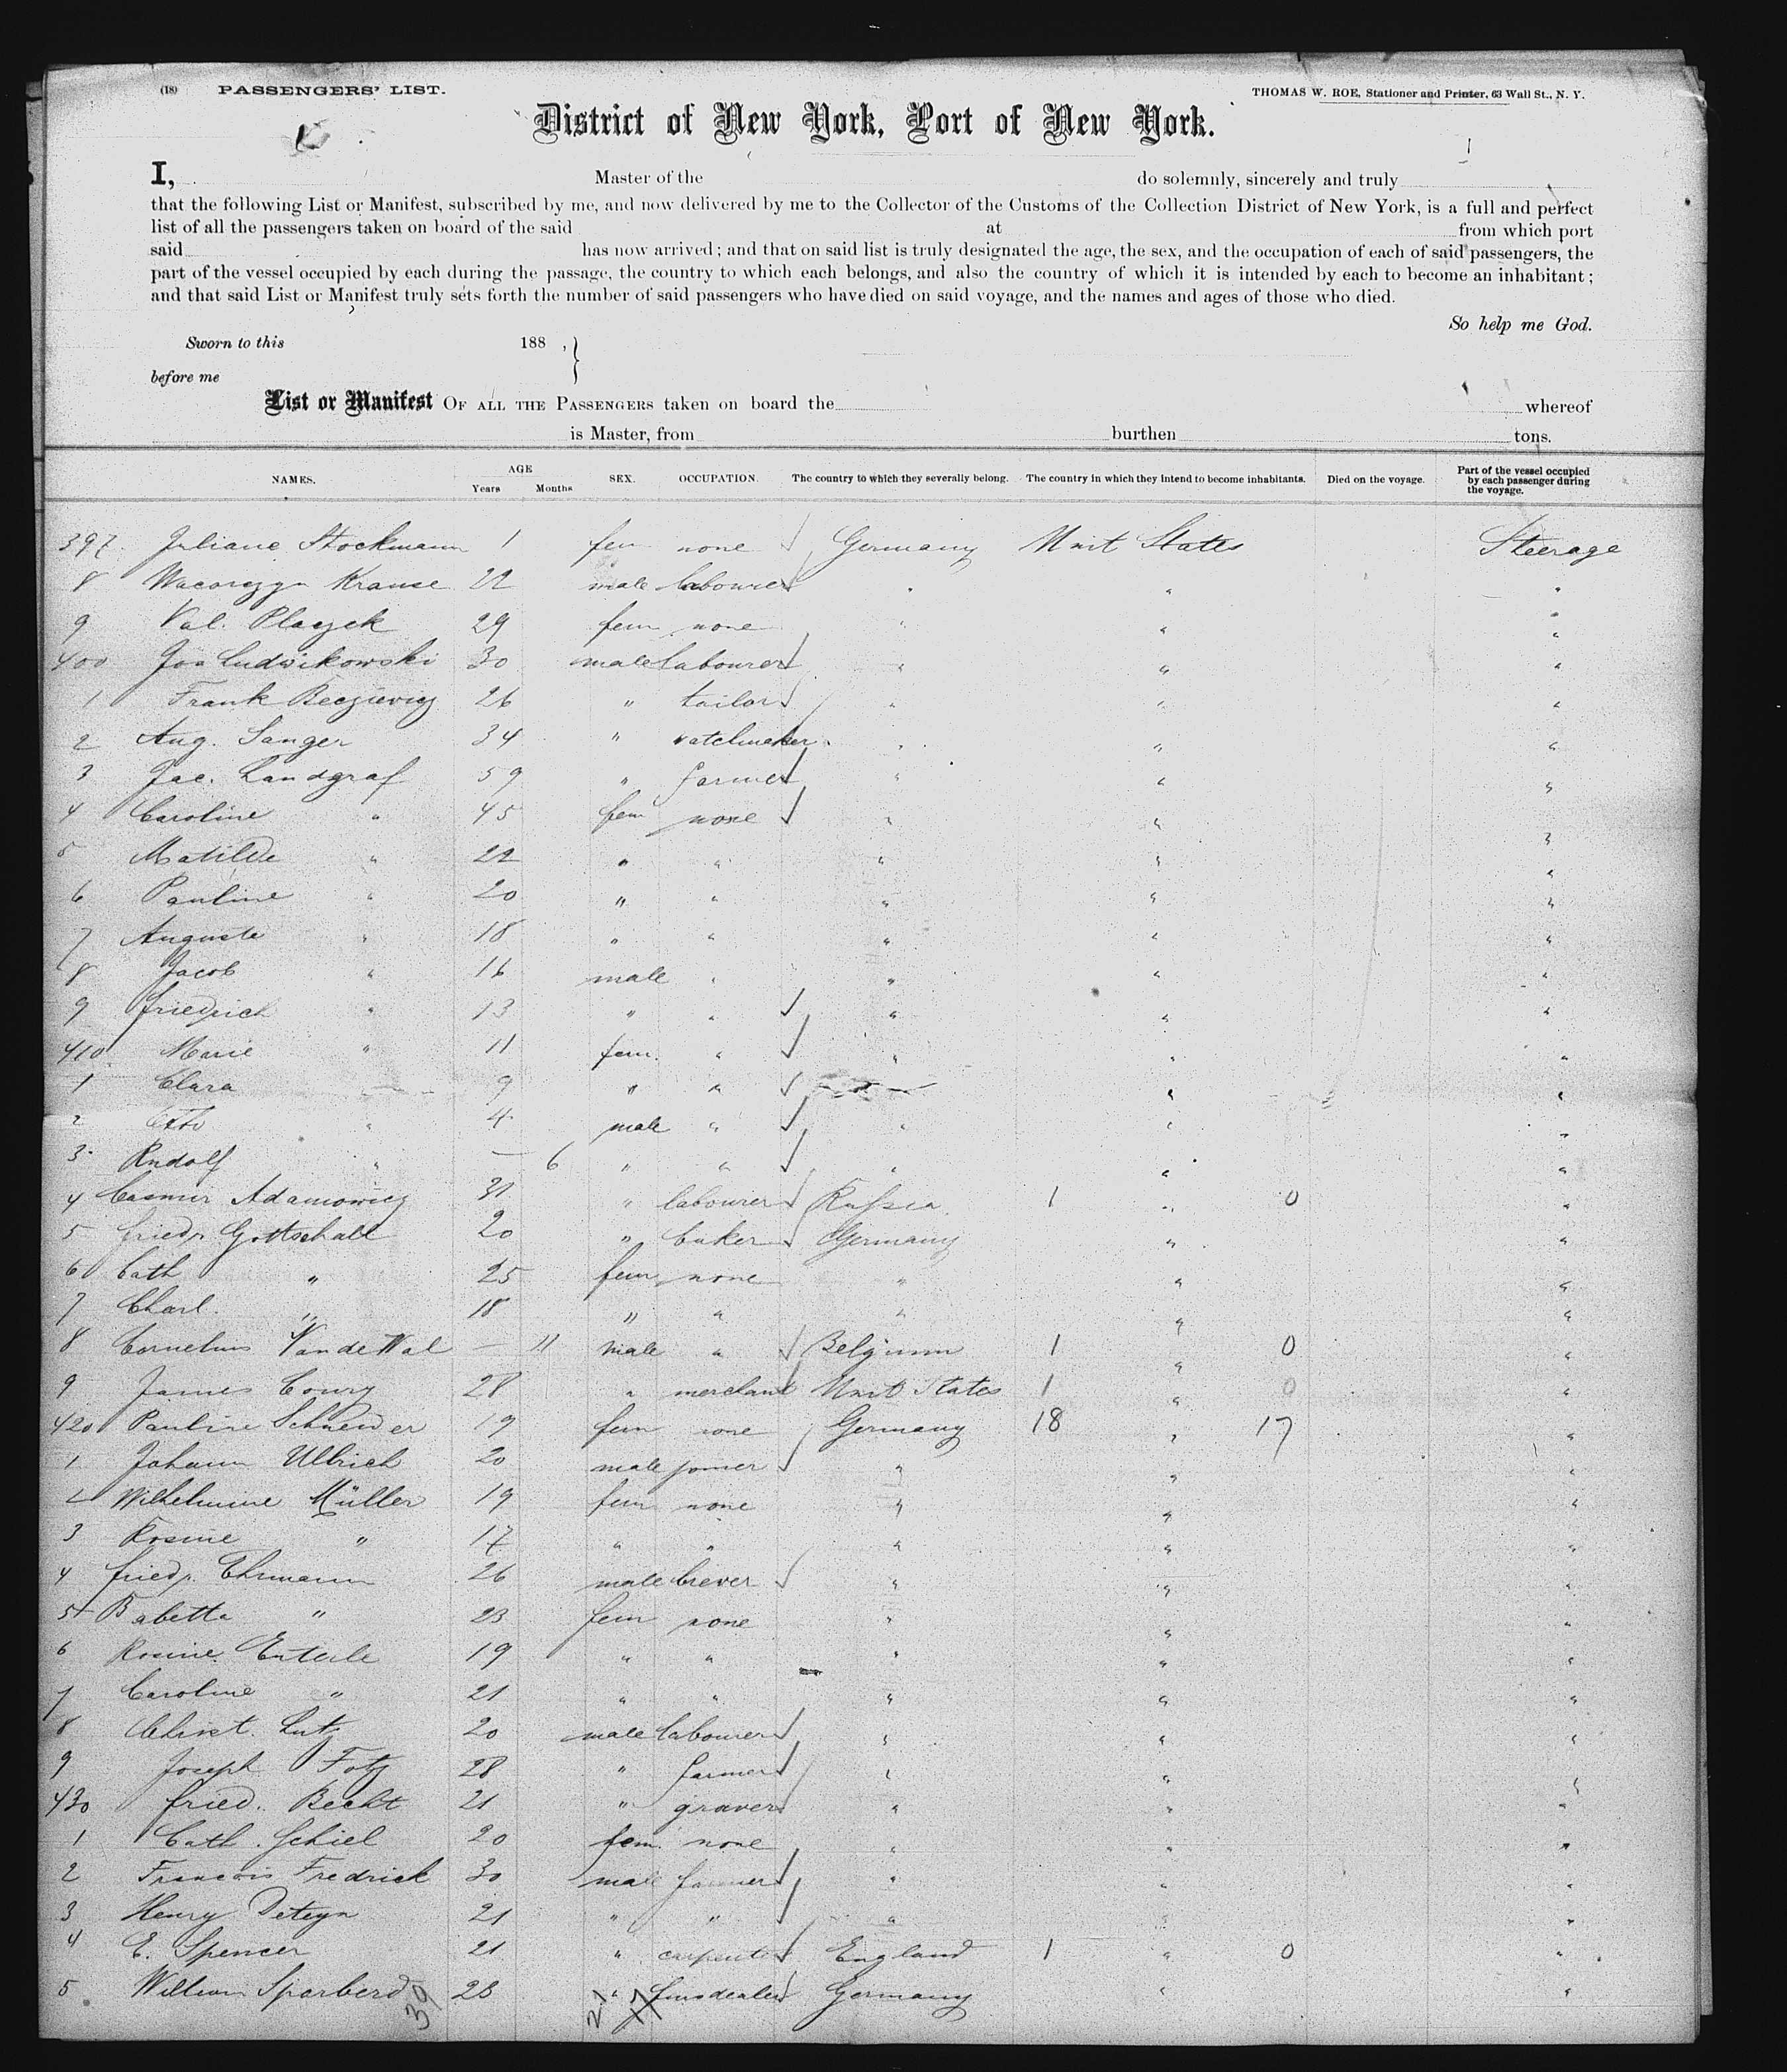 (18) PASSENGERS' LIST. THOMAS W. ROE, Stationer and Printer, 63 Wall St., N. Y.
District of New York, Port of New York.
I, Master of the do solemnly, sincerely and truly
that the following List or Manifest, subscribed by me, and now delivered by me to the Collector of the Customs of the Collection District of New York, is a full and perfect
list of all the passengers taken on board of the said at from which port
said has now arrived; and that on said list is truly designated the age, the sex, and the occupation of each of said passengers, the
part of the vessel occupied by each during the passage, the country to which each belongs, and also the country of which it is intended by each to become an inhabitant;
and that said List or Manifest truly sets forth the number of said passengers who have died on said voyage, and the names and ages of those who died.
So help me God.
Sworn to this 188 , }
before me
List or Manifest OF ALL THE PASSENGERS taken on board the whereof
is Master, from burthen tons.
NAMES. AGE Years Months SEX. OCCUPATION. The country to which they severally belong. The country in which they intend to become inhabitants. Died on the voyage. Part of the vessel occupied by each passenger during the voyage.
397. Juliane Stockmann 1 fem none Germany Unit States Steerage
8 Krause 22 male labourer " " "
9 Val. Placzek 29 fem none " " "
400 Jos Ludwikowski 30 male labourer " " "
1 Frank 26 " tailor " " "
2 Aug. Sanger 34 " watchmaker " " "
3 Jac. Landgraf 59 " farmer " " "
4 Caroline " 45 fem none " " "
5 Matilde " 22 " " " " "
6 Pauline " 20 " " " " "
7 Auguste " 18 " " " " "
8 Jacob " 16 male " " " "
9 Friedrich " 13 " " " " "
410 Marie " 11 fem. " " " "
1 Clara " 9 " " " " "
2 Otto " 4 male " " " "
3 Rudolf " — 6 " " " " "
4 Casmir Adamowicz 31 " labourer Russia 1 " 0 "
5 Friedr. Gottschall 20 " baker Germany " "
6 Cath " 25 fem none " " "
7 Charl. " 18 " " " " "
8 Cornelius VandeWal — 11 male " Belgium 1 " 0 "
9 James Coury 28 " merchant Unit States 1 " 0 "
420 Pauline Schneider 19 fem none Germany 18 " 17 "
1 Johann Ullrich 20 male joiner " " "
2 Wilhelmine Müller 19 fem none " " "
3 Rosine " 17 " " " " "
4 Friedr. Ehrmann 26 male brever " " "
5 Babetta " 23 fem none " " "
6 Rosine Enterle 19 " " " " "
7 Caroline " 21 " " " " "
8 Christ. Lutz 20 male labourer " " "
9 Joseph Fotz 28 " farmer " " "
430 Fried. Becht 21 " graver " " "
1 Cath. Schiel 20 fem. none " " "
2 Francois Fredrick 30 male farmer " " "
3 Henry 21 " " " " "
4 E. Spencer 21 " carpenter England 1 " 0 "
5 William Sparberd 23 " Germany " "
39 21 17